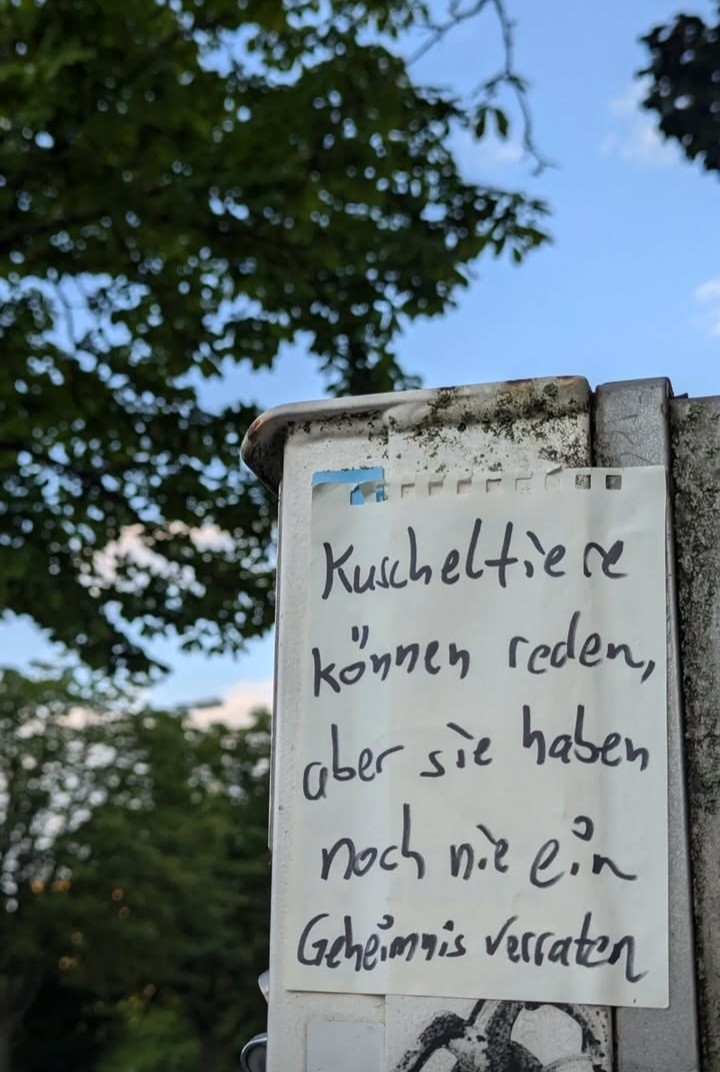 Kuscheltiere
können reden,
aber sie haben
noch nie ein
Geheimnis verraten